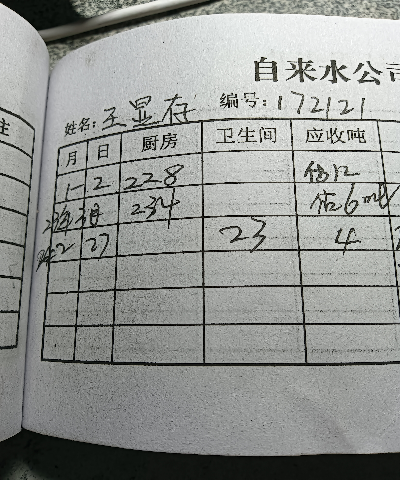 注
自来水公司
姓名: 王显存 编号: 172121
月 日 厨房 卫生间 应收吨
1 2 228 估12
23年 3月 234 估6吨
2 27 23 4